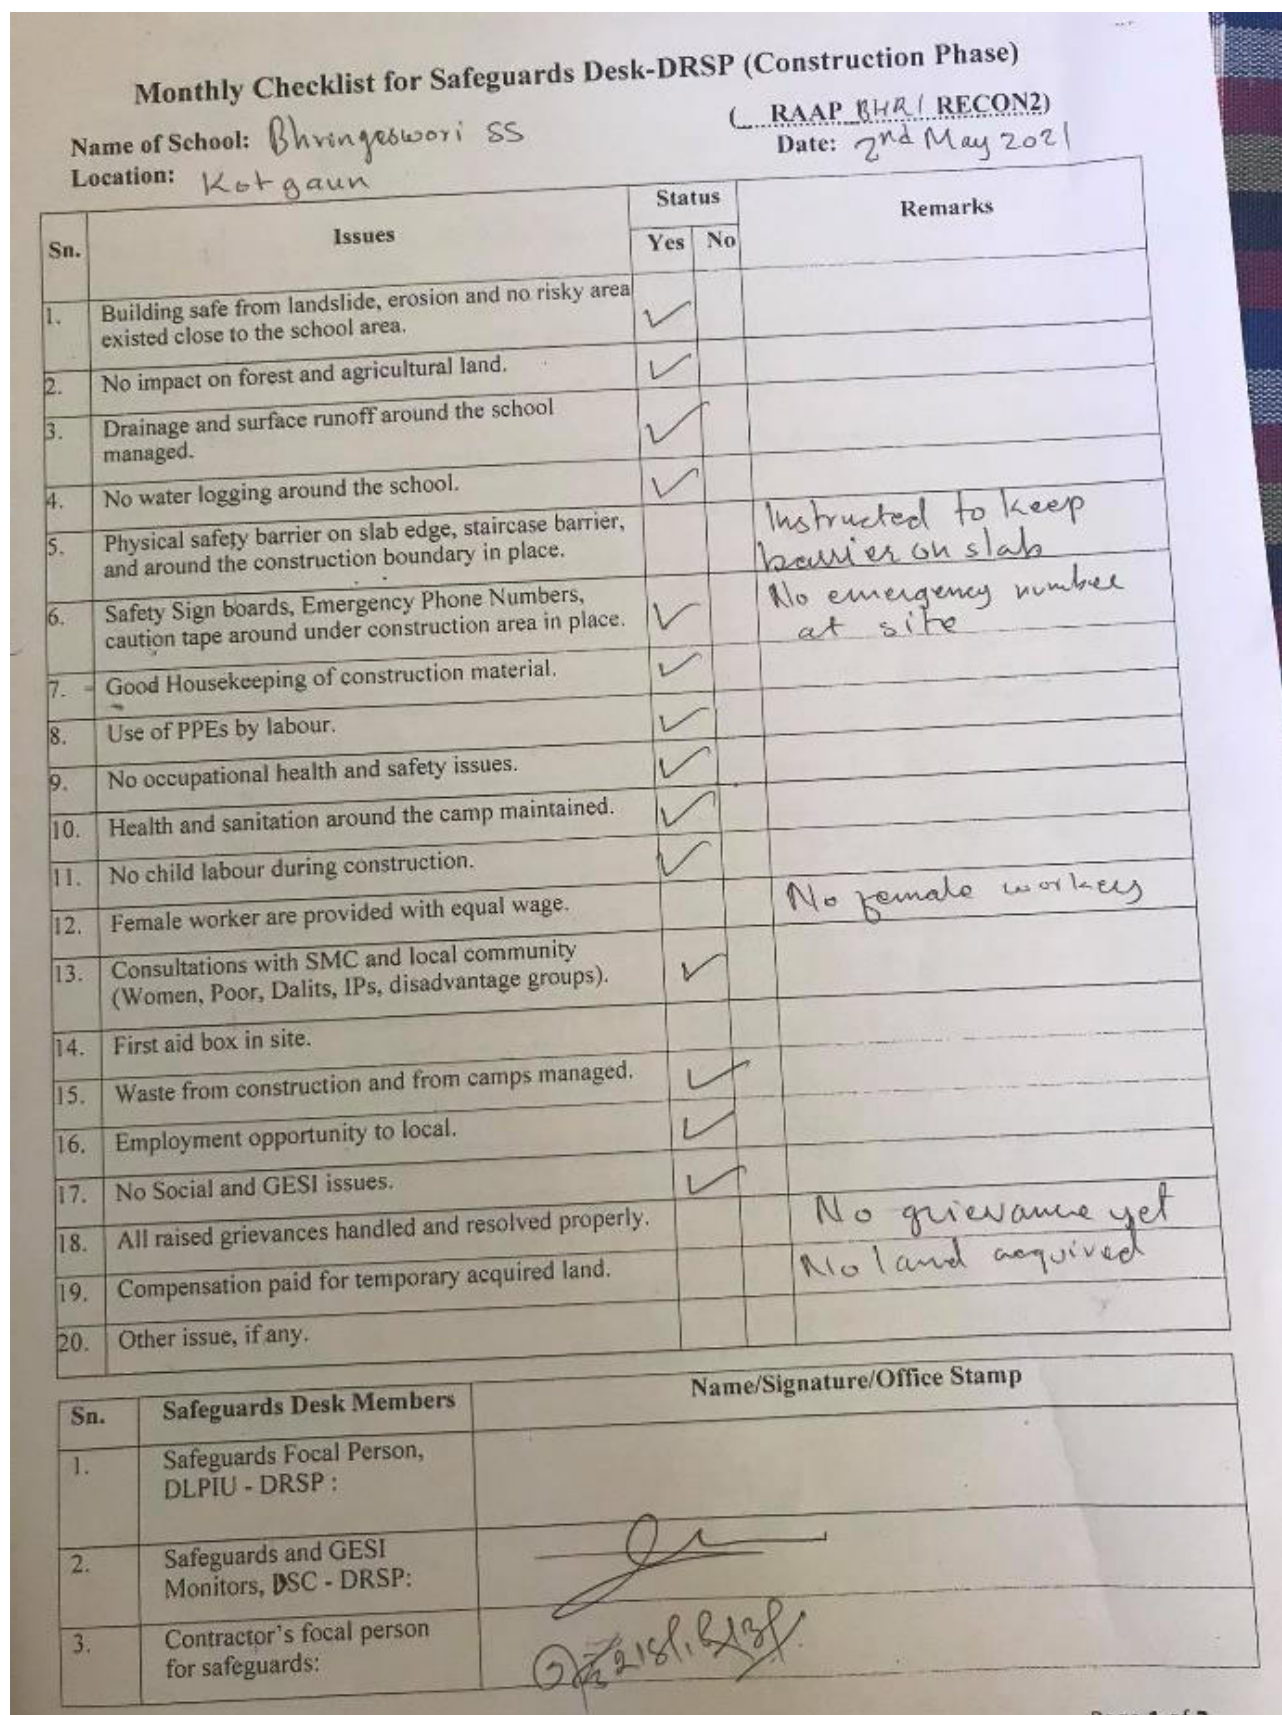 Monthly Checklist for Safeguards Desk-DRSP (Construction Phase)
( RAAP BHRI RECON2)
Name of School: Bhringeswori SS
Date: 2nd May 2021
Location: Kotgaun
Sn. Issues Status Remarks
Yes No
1. Building safe from landslide, erosion and no risky area
existed close to the school area. ✓
2. No impact on forest and agricultural land. ✓
3. Drainage and surface runoff around the school
managed. ✓
4. No water logging around the school. ✓
5. Physical safety barrier on slab edge, staircase barrier, Instructed to keep
and around the construction boundary in place. barrier on slab
6. Safety Sign boards, Emergency Phone Numbers, ✓ No emergency number
caution tape around under construction area in place. at site
7. Good Housekeeping of construction material. ✓
8. Use of PPEs by labour. ✓
9. No occupational health and safety issues. ✓
10. Health and sanitation around the camp maintained. ✓
11. No child labour during construction. ✓
12. Female worker are provided with equal wage. No female workers
13. Consultations with SMC and local community ✓
(Women, Poor, Dalits, IPs, disadvantage groups).
14. First aid box in site.
15. Waste from construction and from camps managed. ✓
16. Employment opportunity to local. ✓
17. No Social and GESI issues. ✓
18. All raised grievances handled and resolved properly. No grievance yet
19. Compensation paid for temporary acquired land. No land acquired
20. Other issue, if any.
Sn. Safeguards Desk Members Name/Signature/Office Stamp
1. Safeguards Focal Person,
DLPIU - DRSP :
2. Safeguards and GESI
Monitors, DSC - DRSP:
3. Contractor's focal person
for safeguards: